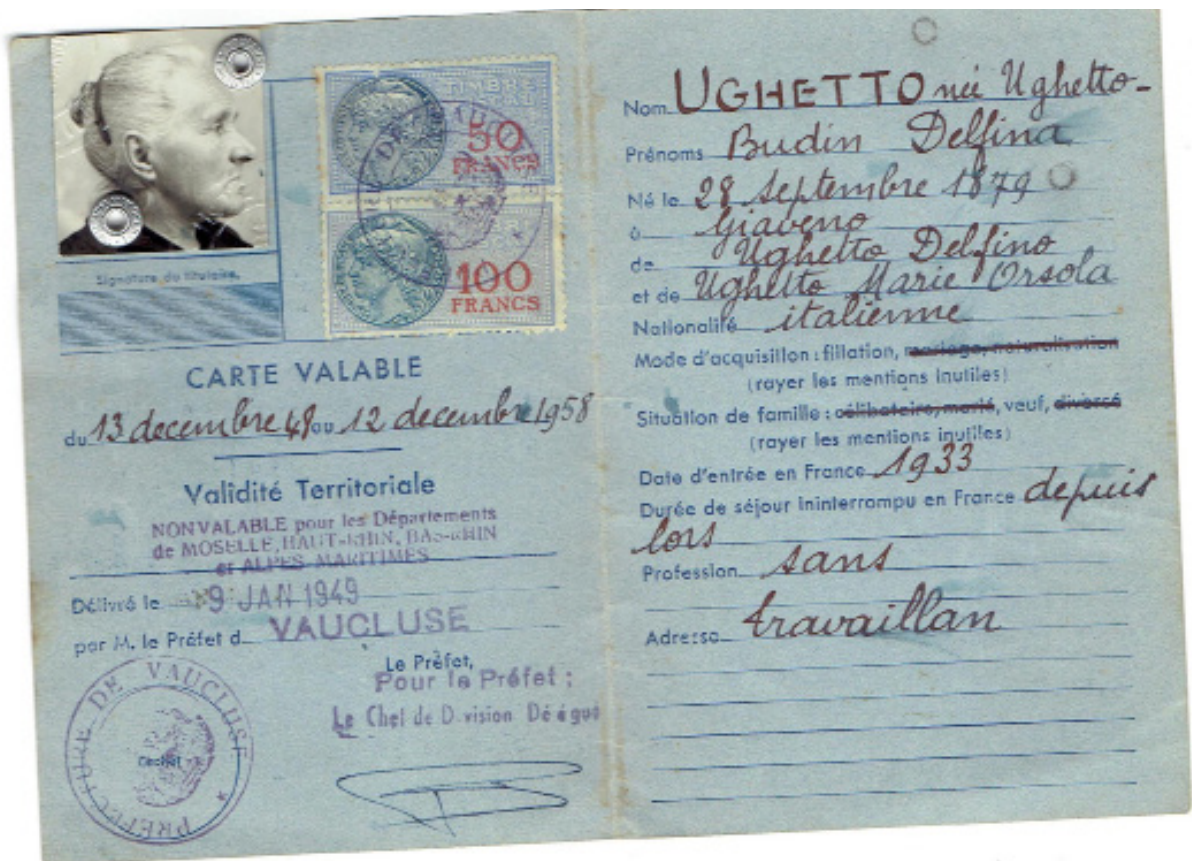 TIMBRE
FISCAL
50
FRANCS
100
FRANCS
Signature du titulaire,
CARTE VALABLE
du 13 decembre 48 au 12 decembre 1958
Validité Territoriale
NON VALABLE pour les Départements
de MOSELLE, HAUT-RHIN, BAS-RHIN
et ALPES MARITIMES
Délivré le 9 JAN 1949
par M. le Préfet d VAUCLUSE
Le Préfet,
Pour le Préfet :
Le Chef de Division Délégué
PREFECTURE DE VAUCLUSE
Cachet
Nom UGHETTO née Ughetto-
Prénoms Budin Delfina
Né le 28 Septembre 1879
à Giaveno
de Ughetto Delfino
et de Ughetto Marie Orsola
Nationalité italienne
Mode d'acquisition : filiation, mariage, naturalisation
(rayer les mentions inutiles)
Situation de famille : célibataire, marié, veuf, divorcé
(rayer les mentions inutiles)
Date d'entrée en France 1933
Durée de séjour ininterrompu en France depuis
lors
Profession sans
Adresse travaillan